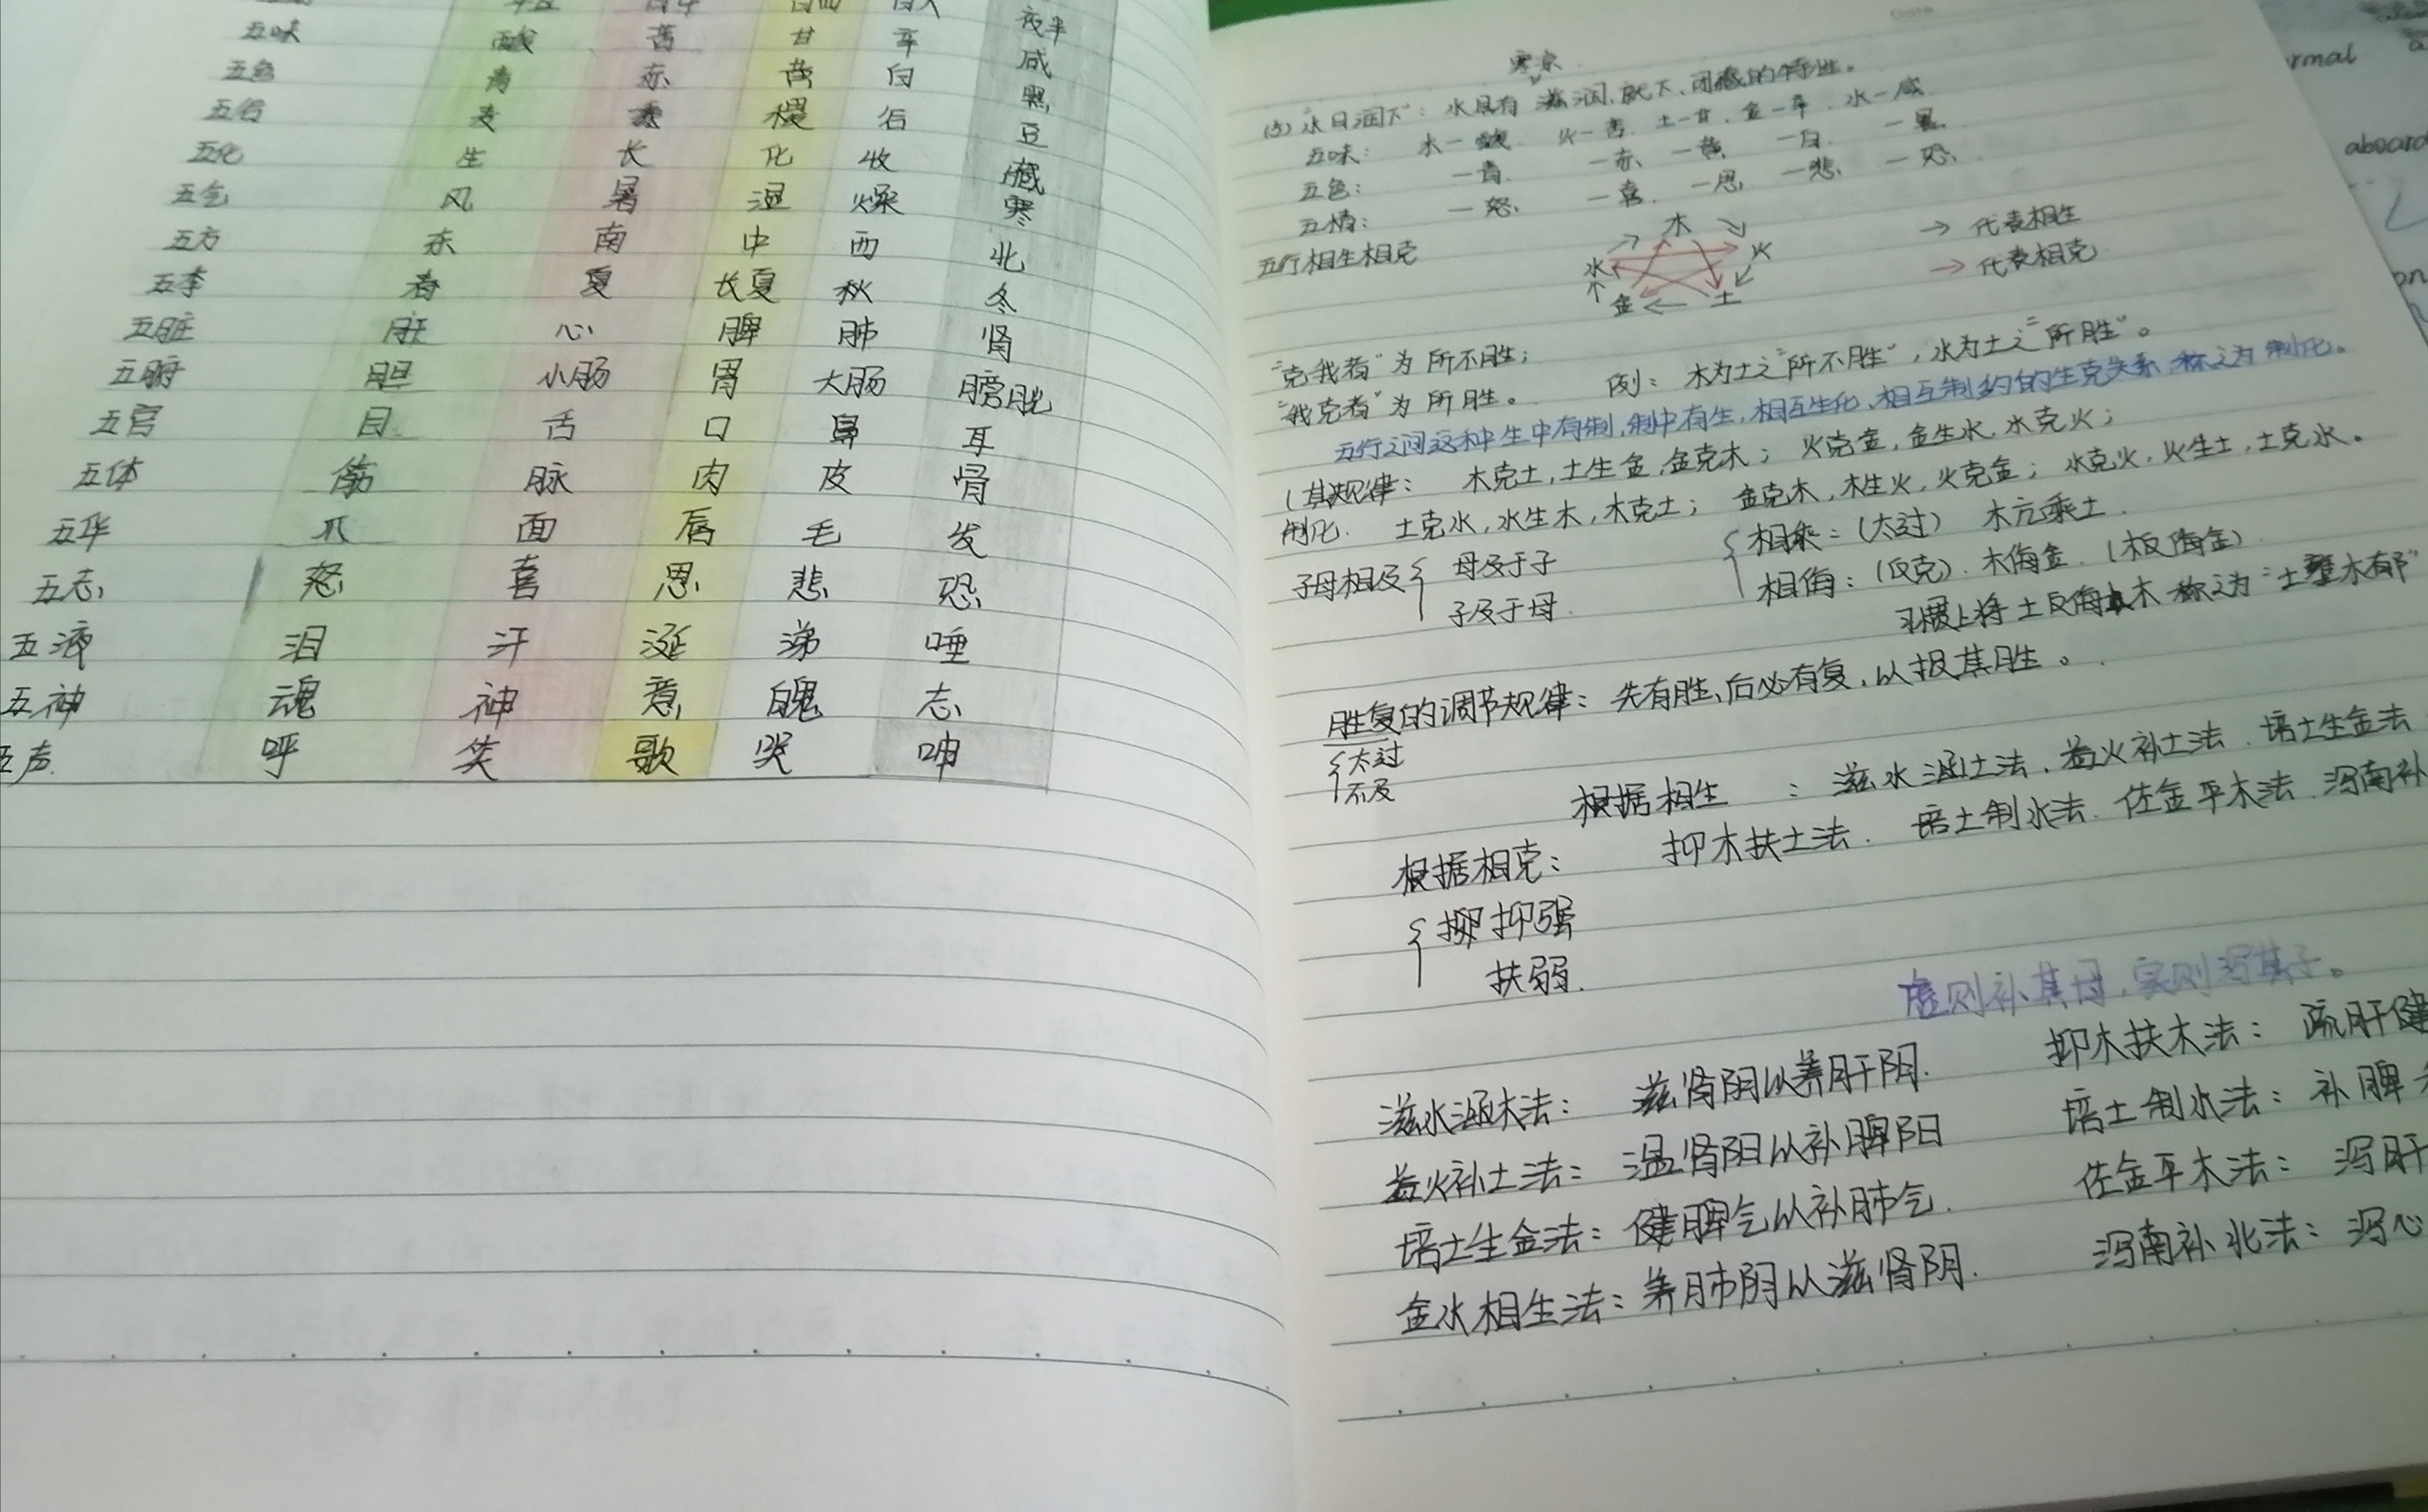 夜半
五味 酸 苦 甘 辛 咸
五色 青 赤 黄 白 黑
五谷 麦 黍 稷 谷 豆
五化 生 长 化 收 藏
五气 风 暑 湿 燥 寒
五方 东 南 中 西 北
五季 春 夏 长夏 秋 冬
五脏 肝 心 脾 肺 肾
五腑 胆 小肠 胃 大肠 膀胱
五官 目 舌 口 鼻 耳
五体 筋 脉 肉 皮 骨
五华 爪 面 唇 毛 发
五志 怒 喜 思 悲 恐
五液 泪 汗 涎 涕 唾
五神 魂 神 意 魄 志
五声 呼 笑 歌 哭 呻
寒凉
(5) 水曰润下": 水具有 滋润、就下、闭藏的特性。
五味: 木-酸 火-苦 土-甘、金-辛、水-咸
五色: -青 -赤 -黄 -白 -黑
五情: -怒 -喜 -思 -悲 -恐
五行相生相克
木 火 土 金 水
→ 代表相生
→ 代表相克
"克我者"为 所不胜;
"我克者"为 所胜。 例: 木为土之"所不胜",水为土之"所胜"。
五行之间这种生中有制,制中有生,相互生化、相互制约的生克关系 称之为 制化。
(其规律: 木克土,土生金,金克木; 火克金,金生水,水克火;
制化. 土克水,水生木,木克土; 金克木,木生火,火克金; 水克火,火生土,土克水。
子母相及{ 母及于子
子及于母.
{相乘:(太过) 木亢乘土.
相侮:(反克). 木侮金. (木反侮金)
习惯上将土反侮木 称之为"土壅木郁"
胜复的调节规律: 先有胜、后必有复,以报其胜。
{太过
不及
根据相生 : 滋水涵土法、益火补土法、培土生金法
根据相克: 抑木扶土法. 培土制水法. 佐金平木法. 泻南补
{抑强
扶弱.
虚则补其母,实则泻其子。
滋水涵木法: 滋肾阴以养肝阴. 抑木扶木法: 疏肝健
益火补土法: 温肾阳以补脾阳 培土制水法: 补脾
培土生金法: 健脾气以补肺气. 佐金平木法: 泻肝
金水相生法: 养肺阴以滋肾阴. 泻南补北法: 泻心
rmal
aboard
on